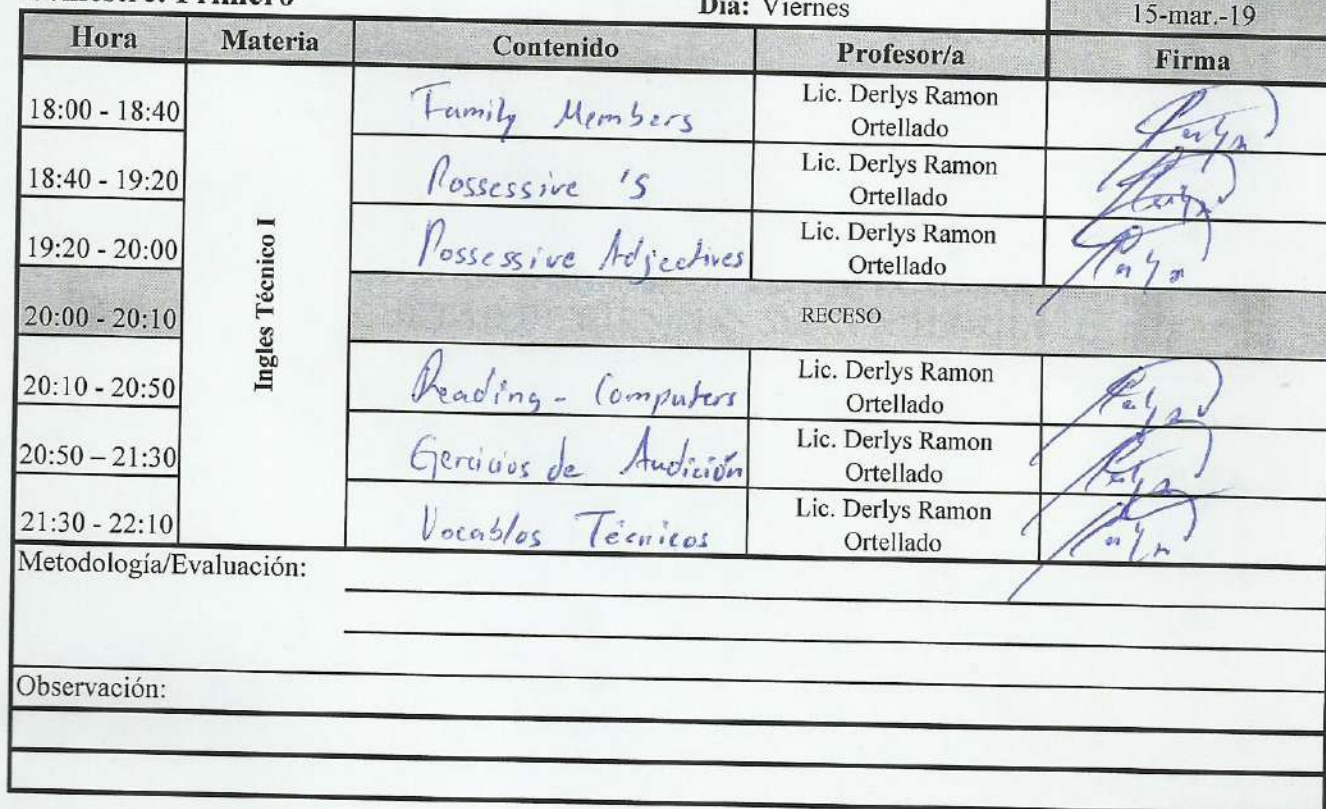 Primero
Día: Viernes
15-mar.-19
Hora Materia Contenido Profesor/a Firma
18:00 - 18:40 Family Members Lic. Derlys Ramon
Ortellado
18:40 - 19:20 Possessive 's Lic. Derlys Ramon
Ortellado
19:20 - 20:00 Possessive Adjectives Lic. Derlys Ramon
Ortellado
Ingles Técnico I
20:00 - 20:10 RECESO
20:10 - 20:50 Reading - Computers Lic. Derlys Ramon
Ortellado
20:50 – 21:30 Ejercicios de Audición Lic. Derlys Ramon
Ortellado
21:30 - 22:10 Vocablos Técnicos Lic. Derlys Ramon
Ortellado
Metodología/Evaluación:
Observación: